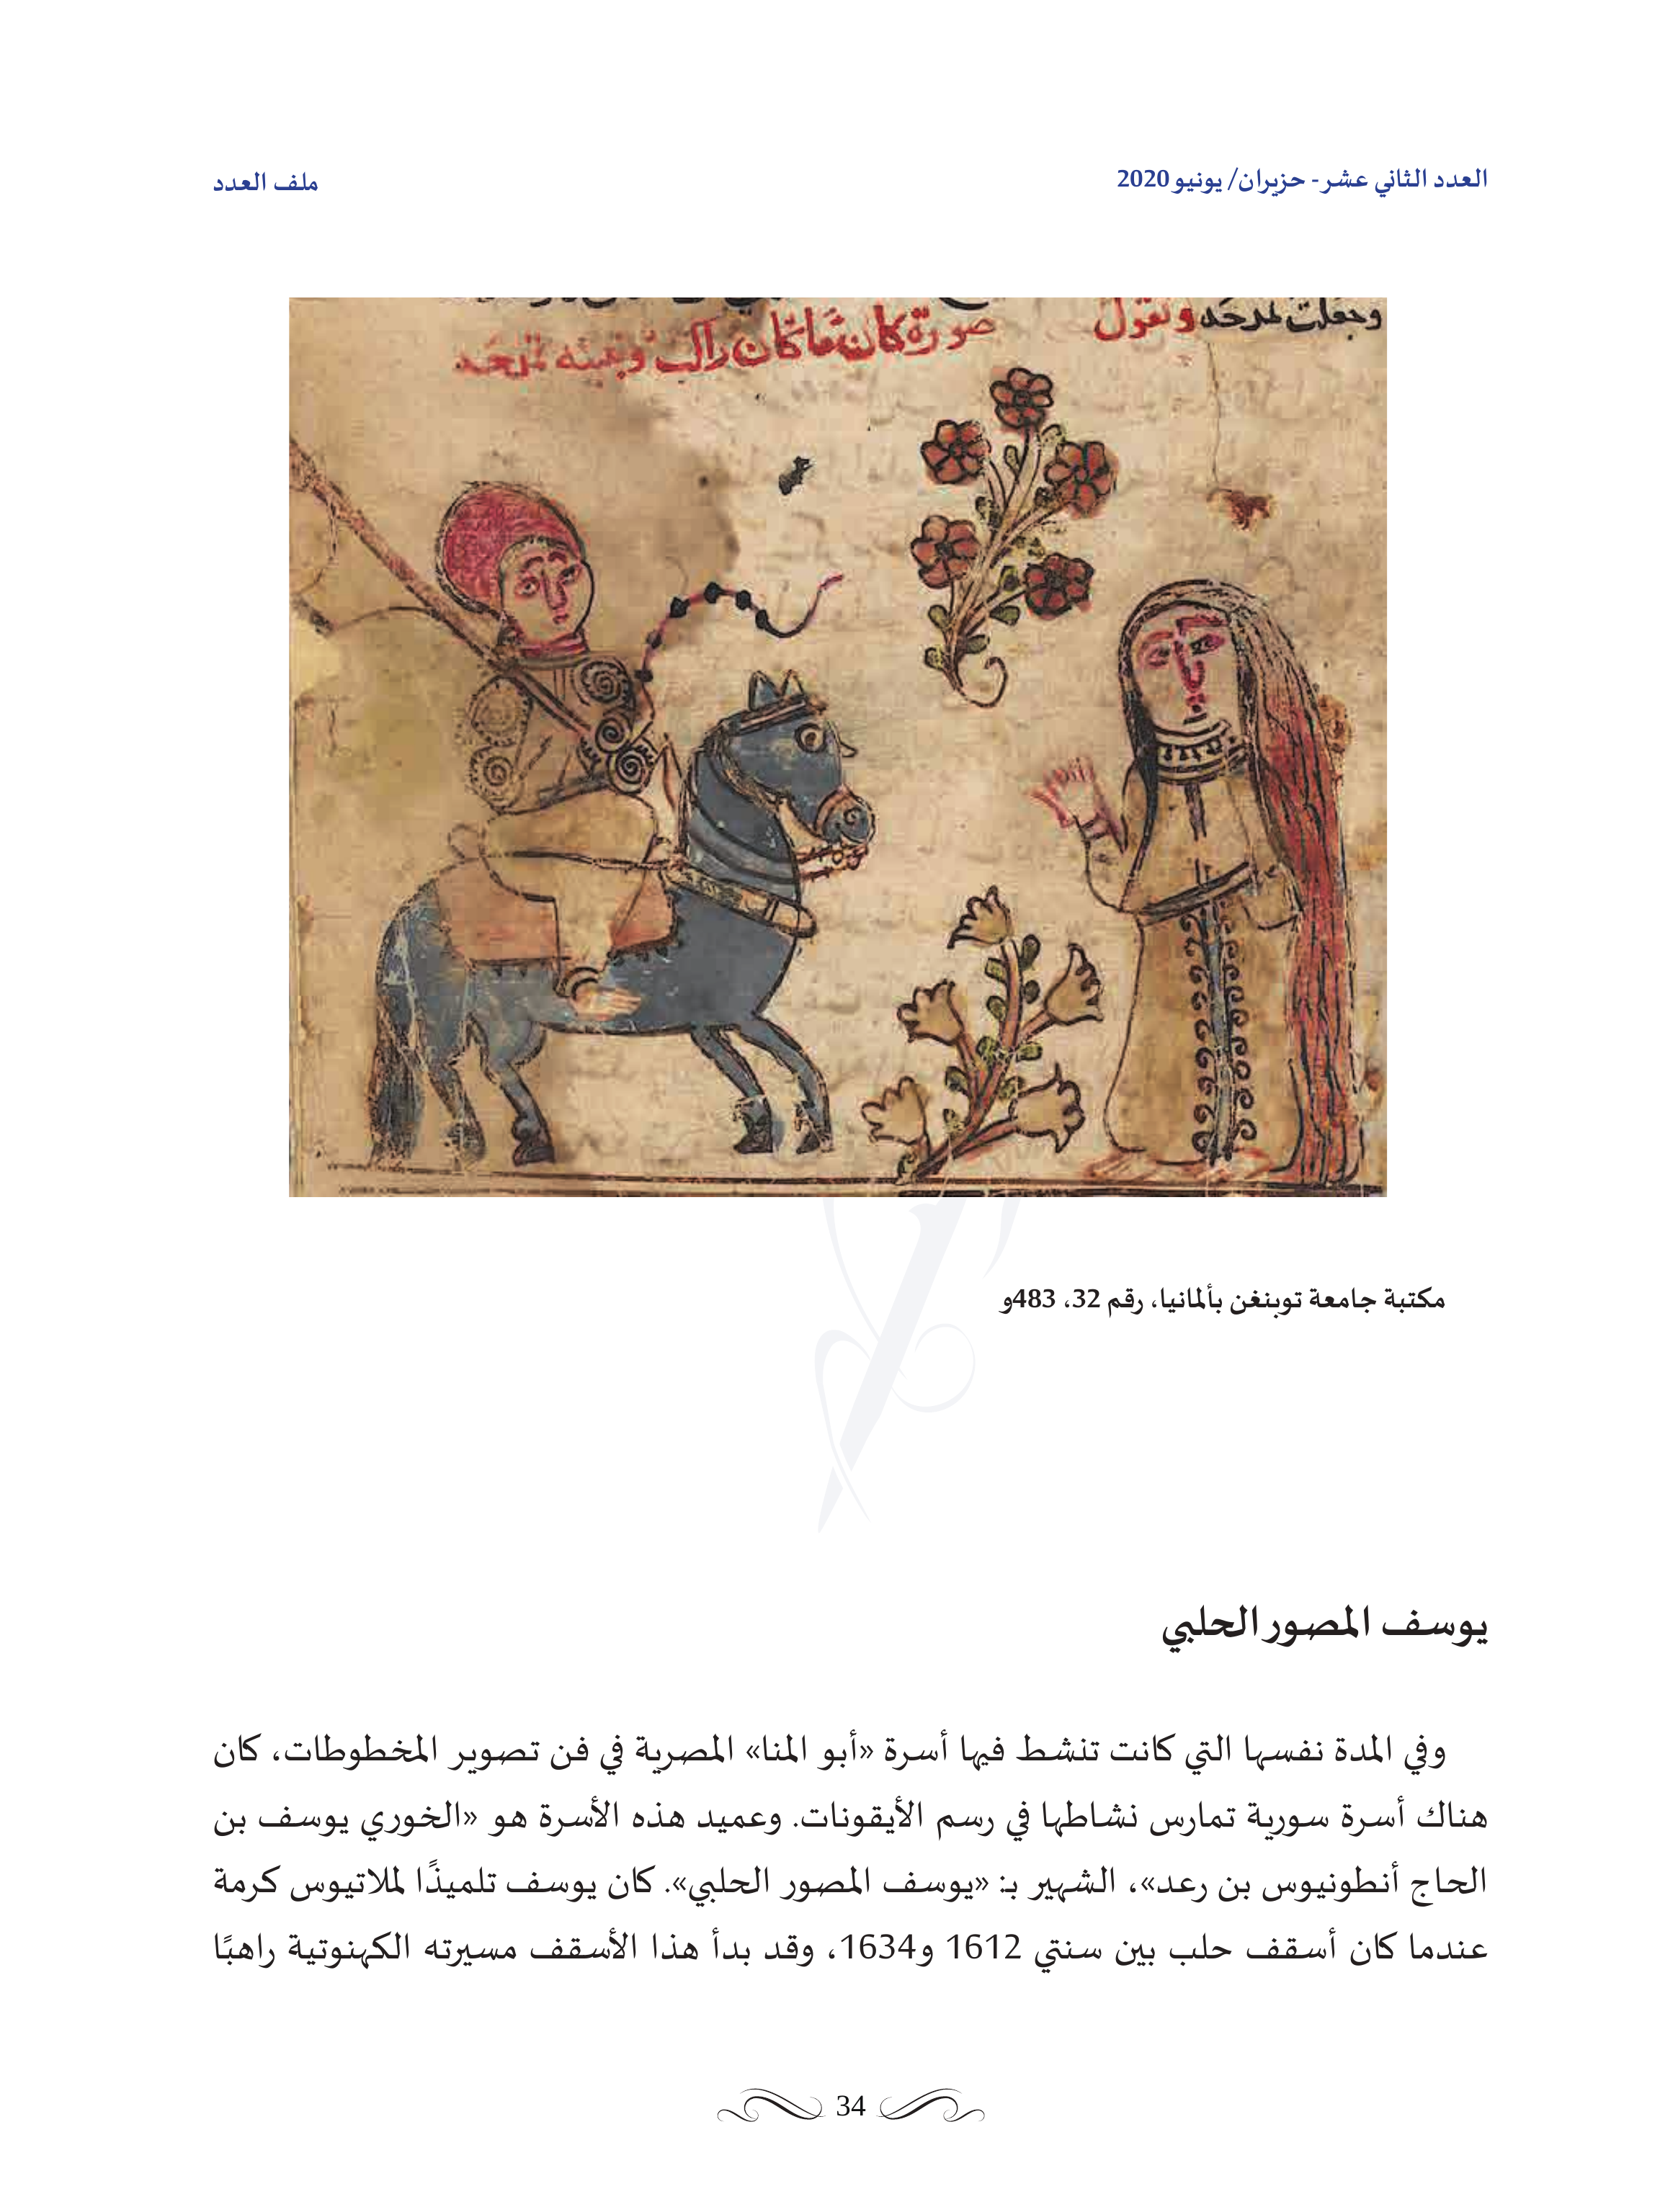 العدد الثاني عشر - حزيران/ يونيو 2020
ملف العدد
وجعلت لمرحه وتقول
صورة كان ما كان راكب
مكتبة جامعة توبنغن بألمانيا، رقم 32، 483و
يوسف المصور الحلبي
وفي المدة نفسها التي كانت تنشط فيها أسرة «أبو المنا» المصرية في فن تصوير المخطوطات، كان
هناك أسرة سورية تمارس نشاطها في رسم الأيقونات. وعميد هذه الأسرة هو «الخوري يوسف بن
الحاج أنطونيوس بن رعد»، الشهير بـ: «يوسف المصور الحلبي». كان يوسف تلميذًا لملاتيوس كرمة
عندما كان أسقف حلب بين سنتي 1612 و1634، وقد بدأ هذا الأسقف مسيرته الكهنوتية راهبًا
34